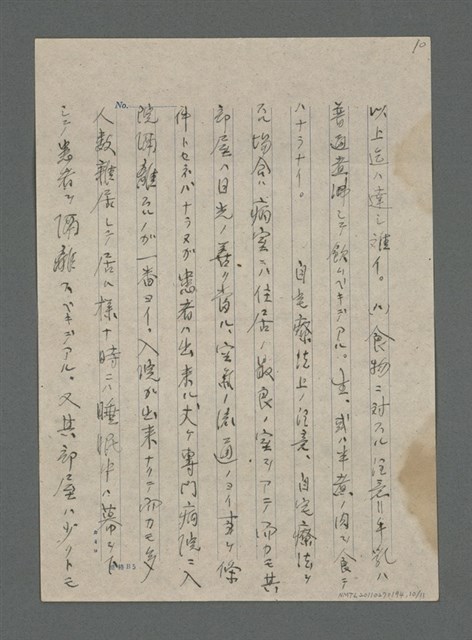 10
以上迄ハ達シ難イ。(ハ)食物ニ対スル注意リ牛乳ハ
普通煮沸シテ飲ムベキデアル。生、或ハ半煮ノ肉ヲ食テ
ハナラナイ。 自宅療法上ノ注意、自宅療法ヲ
スル場合ハ病室ハ住居ノ最良ノ室デアテ而カモ其
部屋ハ日光ノ善ク當ル、空氣ノ流通ノヨイ事ヲ條
件トセネバナラヌガ患者ハ出来ル丈ケ専門病院ニ入
院隔離スルノガ一番ヨイ。入院ガ出来ナクテ而カモ多
人数雜居シテ居ル様ナ時ニハ睡眠中ハ幕ヲ下
シテ患者ヲ隔離スベキデアル。又其部屋ハ少クトモ
No.
B5
NMTL20110270194_10/11